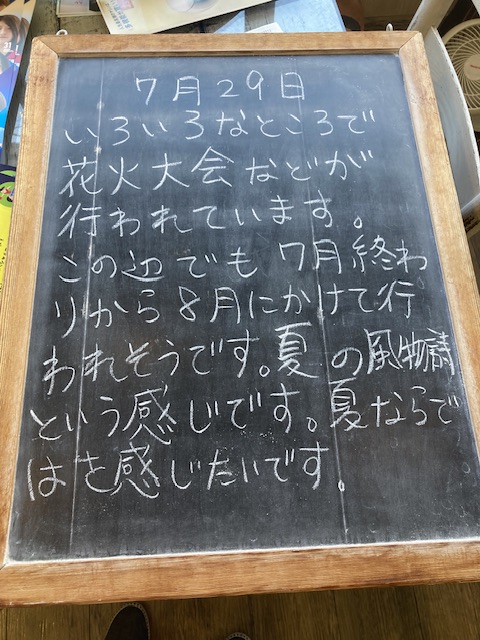 7月29日
いろいろなところで
花火大会などが
行われています。
この辺でも7月終わ
りから8月にかけて行
われそうです。夏の風物詩
という感じです。夏ならで
はを感じたいです。